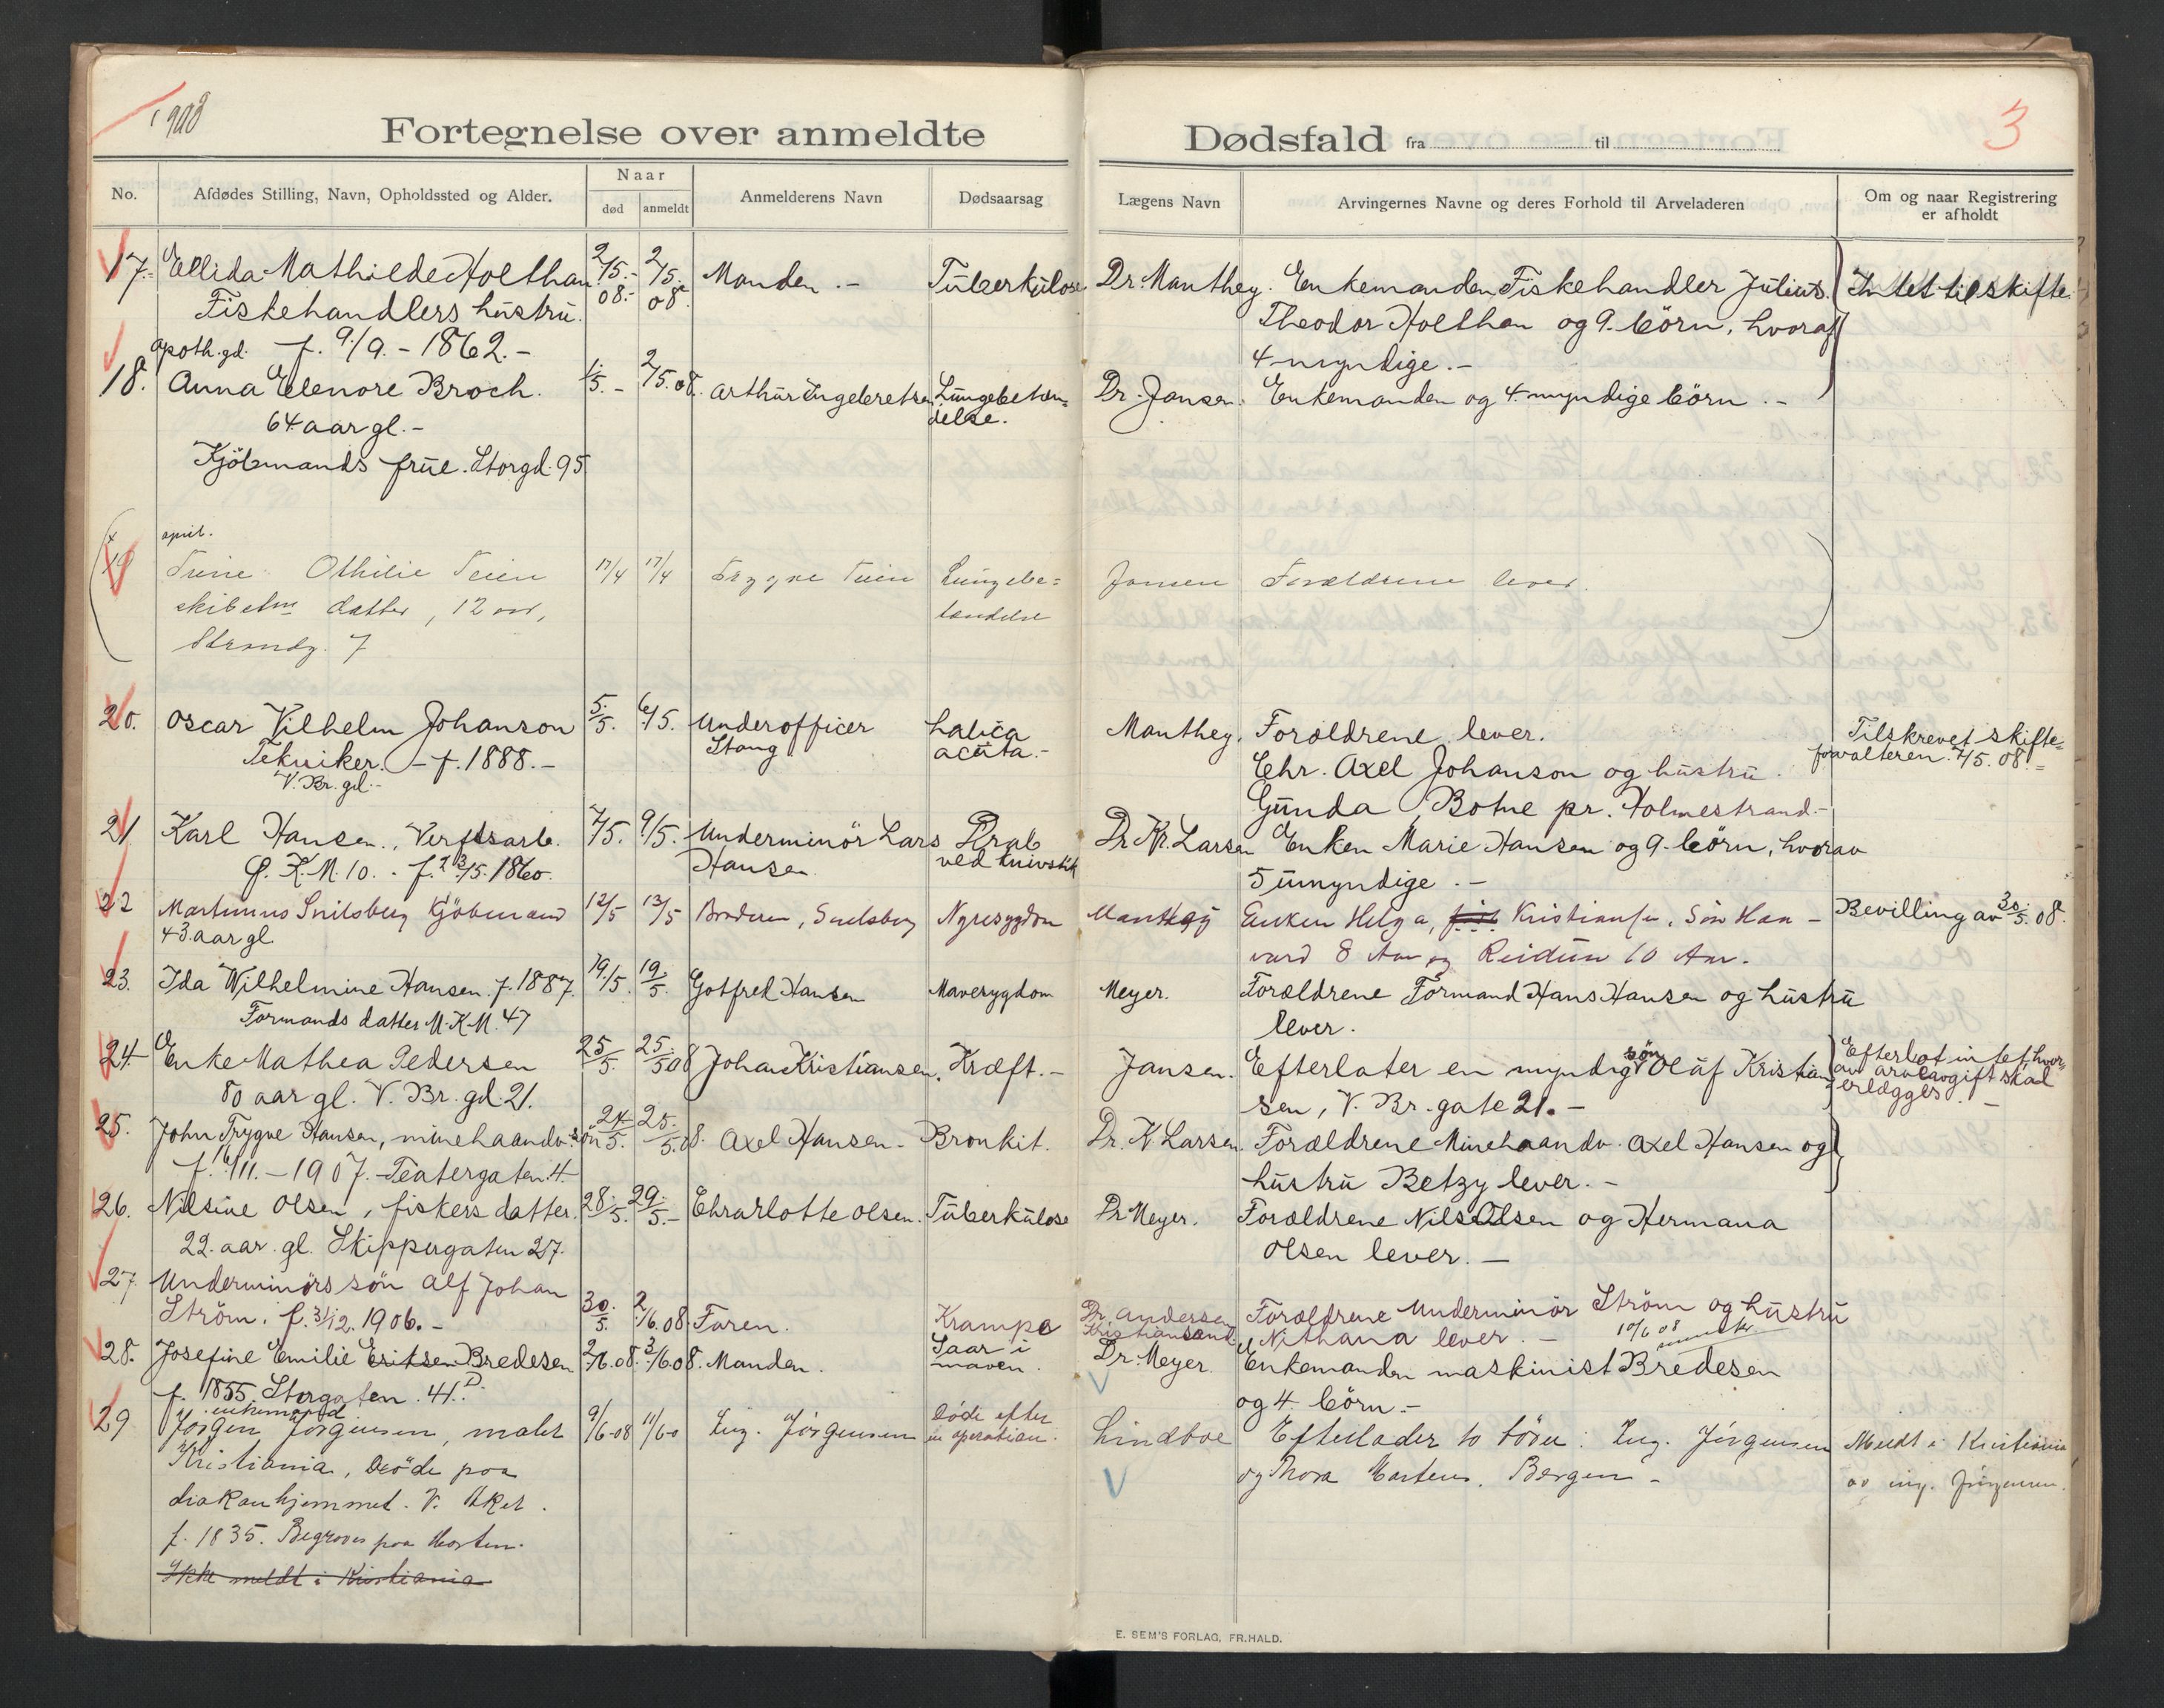 1908
Fortegnelse over anmeldte Dødsfald fra til
3
No.
Afdødes Stilling, Navn, Opholdssted og Alder.
Naar
død
anmeldt
Anmelderens Navn
Dødsaarsag
Lægens Navn
Arvingernes Navne og deres Forhold til Arveladeren
Om og naar Registrering
er afholdt
17. Ellida Mathilde Holthan 2/5.- 2/5. Manden.- Tuberkulose Dr. Manthey. Enkemanden Fiskehandler Julius Intet til skifte
Fiskehandlers hustru. 08.- 08. Theodor Holthan og 9. börn, hvoraf
apoth.gd. f. 9/9.-1862.- 4 myndige.-
18. Anna Elenore Broch. 1/5.- 2/5.08. Arthur Engebretsen Lungebetæn= Dr. Jansen. Enkemanden og 4 myndige börn.-
64 aar gl.- delse.
Kjöbmands frue. Storgd. 95
april.
19 Trine Othilie Teien 17/4 17/4 Trygve Teien Lungebe= Jansen Forældrene lever.
skibstm datter, 12 aar, tændelse
Strandg. 7
20. Oscar Vilhelm Johanson 5/5. 6/5. Underofficer acuta.- Manthey. Forældrene lever. Tilskrevet skifte=
Tekniker. - f. 1888.- Stang Chr. Axel Johanson og hustru. forvalteren 7/5.08.=
V. Br. gd.- Gunda, Botne pr. Holmestrand.-
21. Karl Hansen, Verftsarb. 7/5. 9/5. Underminör Lars Drab Dr Kr. Larsen Enken Marie Hansen og 9. börn, hvorav
Ø. K. M. 10. f. 23/5. 1860. Hansen ved knivstik 5 umyndige.-
22 Martinius Snilsberg Kjöbmand 12/5 13/5 Broderen, Snilsberg Nyresygdom Manthey Enken Helga, Kristiansen, Sön Haa- Bevilling av 30/5.08.
43 aar gl vard 8 Aar og Reidun 10 Aar.
23. Ida Wilhelmine Hansen. f. 1887. 19/5. 19/5. Gotfred Hansen Mavesygdom Meyer. Forældrene Formand Hans Hansen og hustru
Formands datter M. K. M. 47 lever.
24. Enke Mathea Pedersen 25/5. 25/5 08 Johan Kristiansen. Kræft.- Jansen. Efterlater en myndig sön Oluf Kristian= Efterlot intet, hvor=
80 aar gl. V. Br. gd. 21. sen, V. Br. gate 21.- av arveavgift skal
erlægges.-
25. John Trygve Hansen, minehaandv. sön 24/5. 25/5.08. Axel Hansen- Bronkit. Dr. K. Larsen. Forældrene Minehaandv. Axel Hansen og
f. 6/11.-1907.- Teatergaten 4. hustru Betzy lever.-
26. Nilsine Olsen, fiskers datter. 28/5. 29/5.- Chrarlotte Olsen. Tuberkulose Dr Meyer. Forældrene Nils Olsen og Hermana
22. aar. gl. Skippergaten 27. Olsen lever.-
27. Underminörs sön Alf Johan 30/5. 2/6.08. Faren. Krampe Dr. Andersen Forældrene Underminör Ström og hustru
Ström. f. 31/12.1906.- Kristiansand. Nithana lever.- 10/6 08
28. Josefine Emilie Eriksen Bredesen 2/6.08. 3/6.08. Manden. Saar i Dr. Meyer. Enkemanden maskinist Bredesen
f. 1855. Storgaten. 41. D. maven. og 4. börn.-
enkemand
29 Jörgen Jörgensen, maler 9/6-08 11/6-0 Ing. Jörgensen Döde efter Lindboe Efterlader to börn: Ing. Jörgensen Meldt i Kristiania
Kristiania, Döde paa en operation. og Thora Martens, Bergen- av ing. Jörgensen.
diakonhjemmet. V. Aker.
f. 1835. Begraves paa Horten.
Ikke meldt i Kristiania
E. SEM'S FORLAG, FR.HALD.